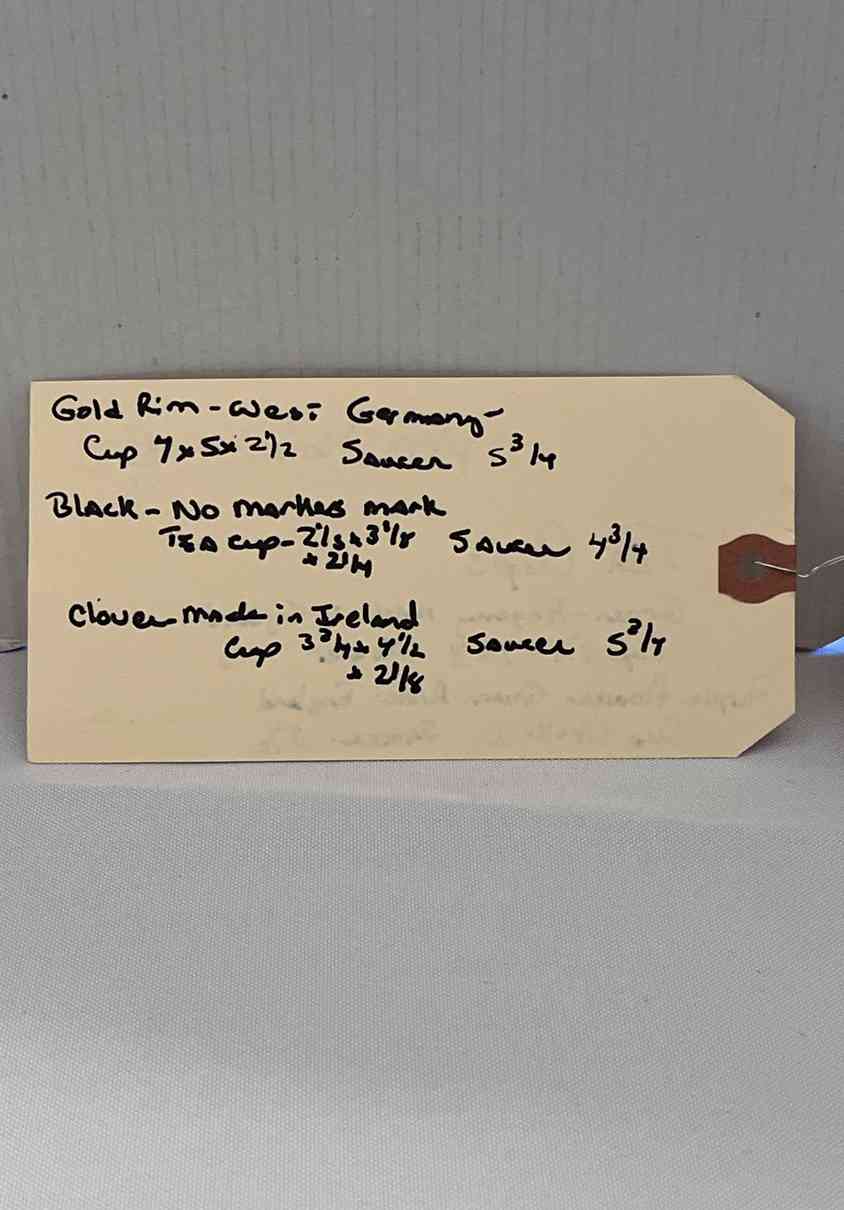 Gold Rim - West Germany -
Cup 4 x 5 x 2 1/2 Saucer 5 3/4
Black - No markers mark
TEA Cup - 2 1/8 x 3 1/8 Saucer 4 3/4
x 2 1/4
Clover made in Ireland
Cup 3 3/4 x 4 1/2 Saucer 5 3/4
x 2 1/8